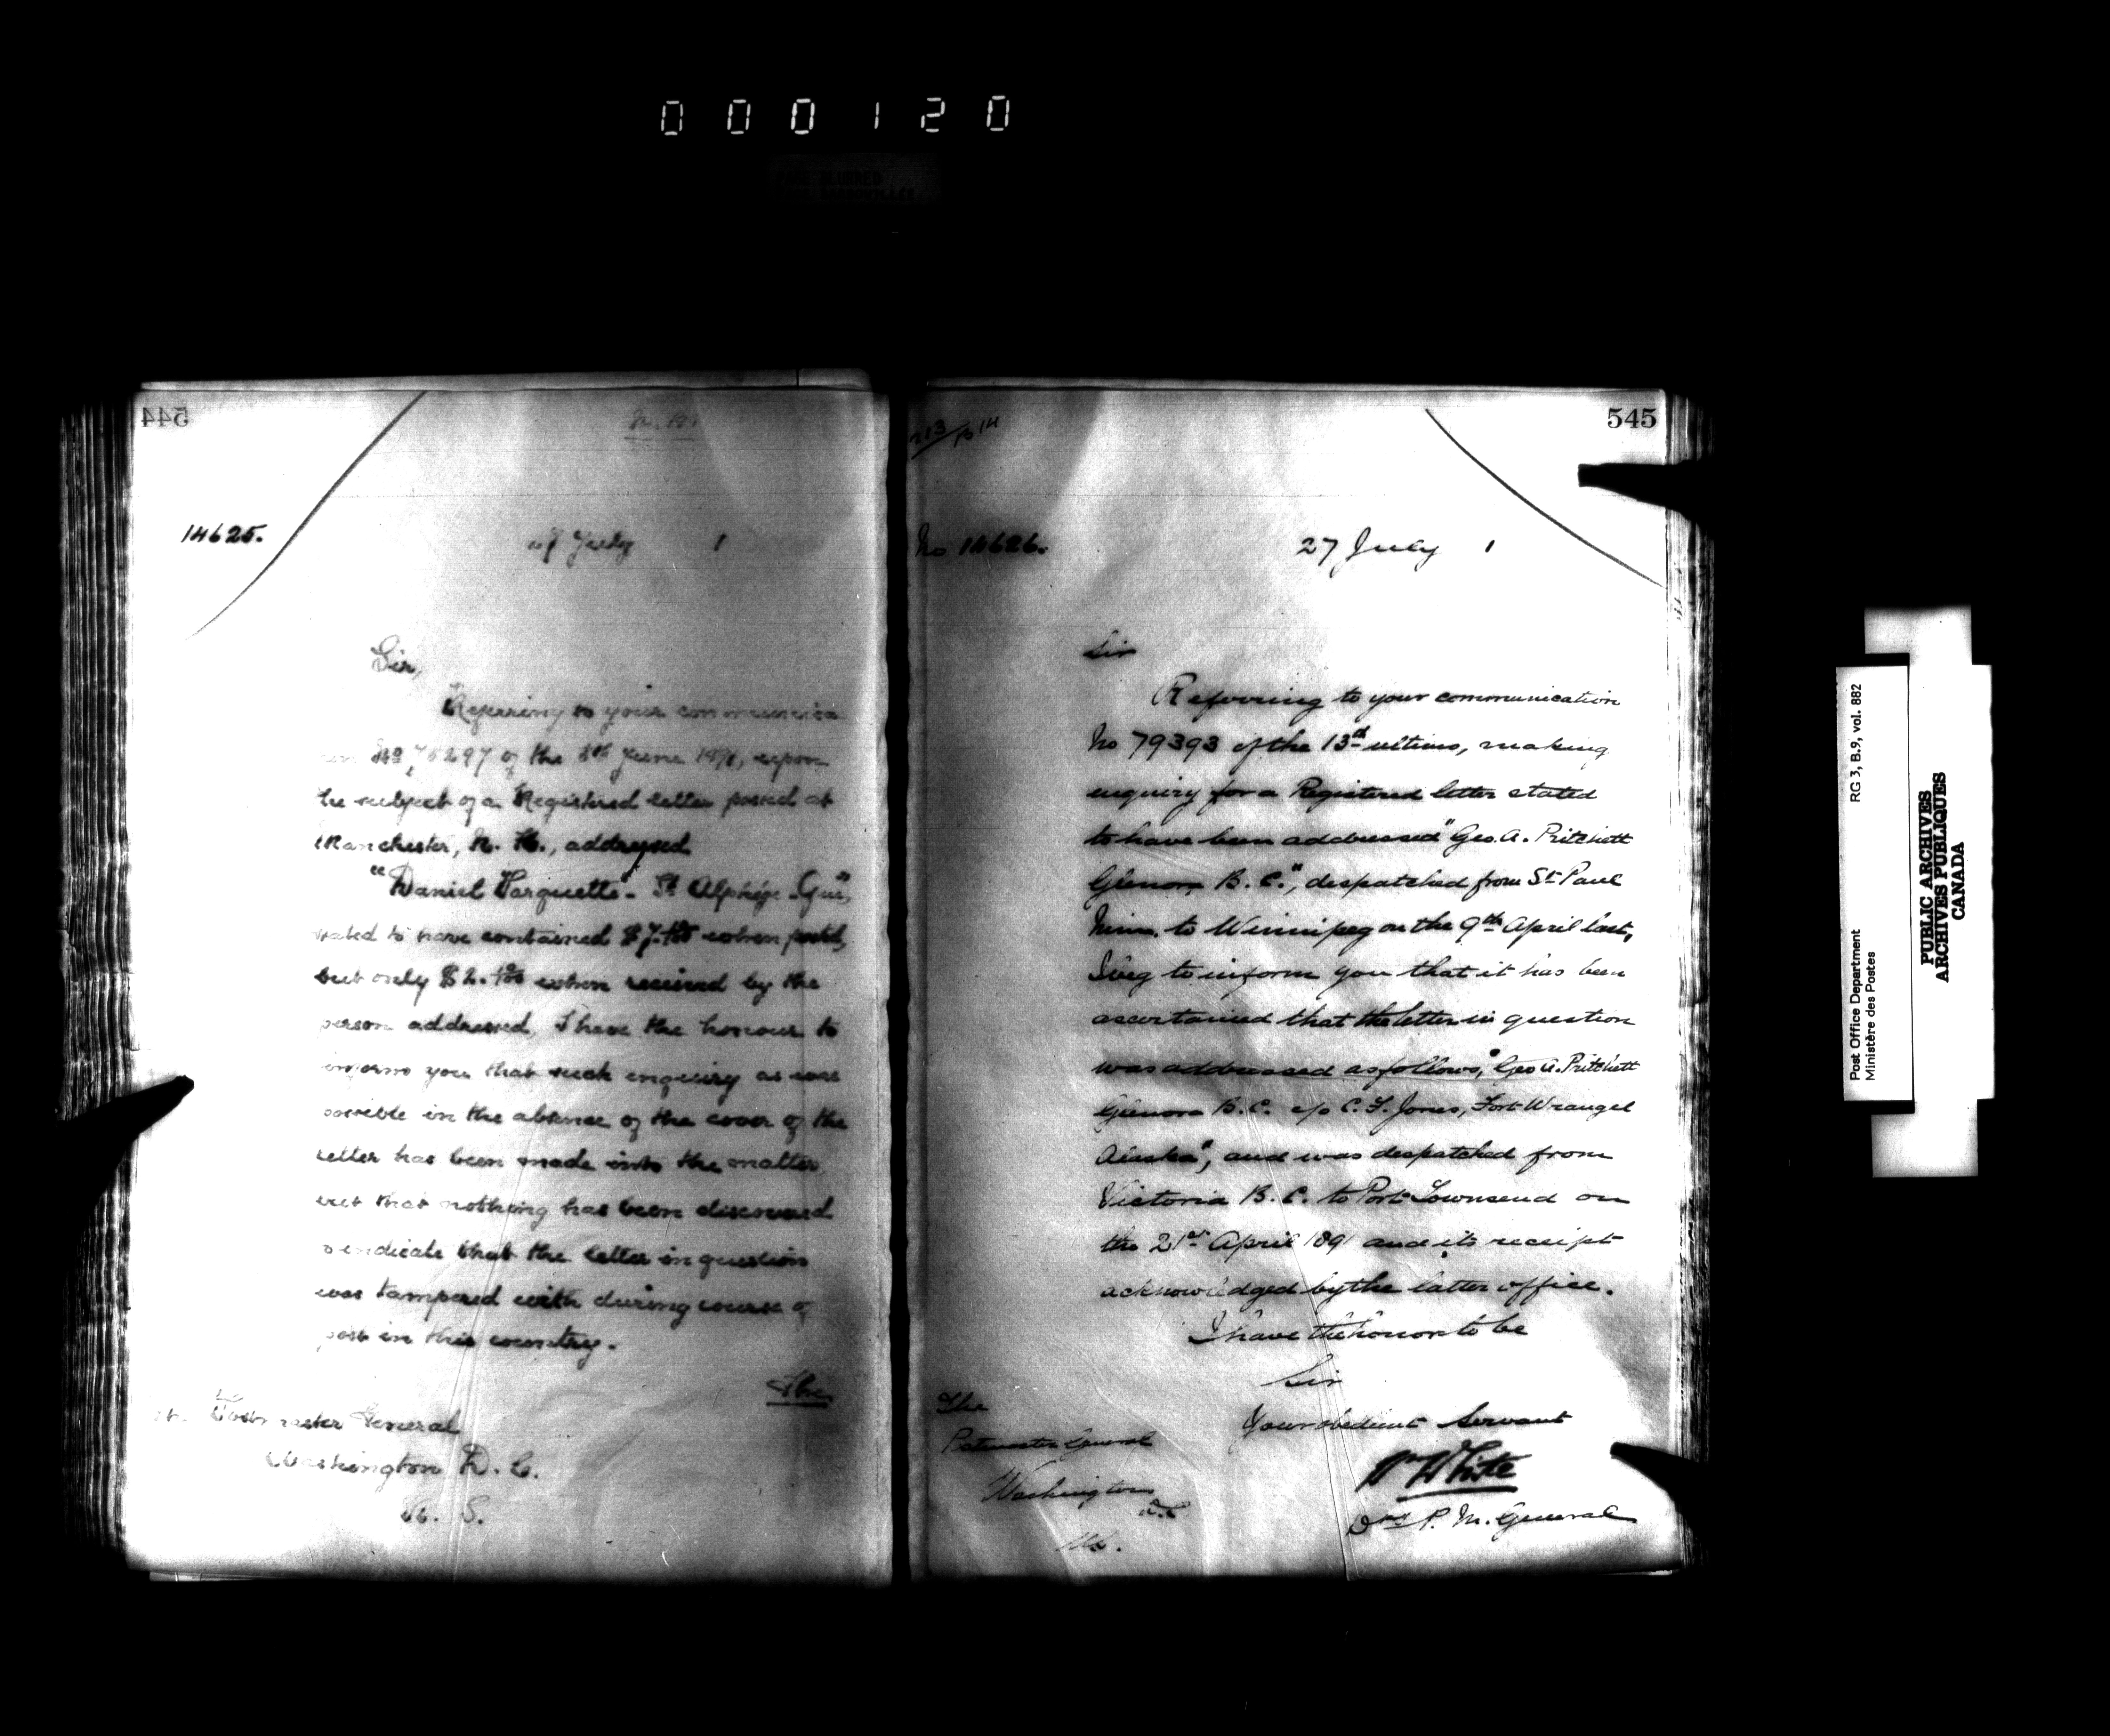 000120
PAGE BLURRED
544
14625.
27 July 1
Sir,
Referring to your communica
No 75297 of the 8th June 1891, upon
the subject of a Registered letter posted at
Manchester, N. H., addressed
"Daniel Marquette - St Alphége Que",
stated to have contained $7. when posted,
but only $2. when received by the
person addressed, I have the honour to
inform you that such enquiry as was
possible in the absence of the cover of the
letter has been made into the matter
but that nothing has been discovered
to indicate that the letter in question
was tampered with during course of
post in this country.
The
The Postmaster General
Washington D. C.
U. S.
545
No 14626.
27 July 1
Sir
Referring to your communication
No 79393 of the 13th ultimo, making
enquiry for a Registered letter stated
to have been addressed "Geo. A. Pritchett
Glenora B. C.", despatched from St Paul
Minn. to Winnipeg on the 9th April last,
I beg to inform you that it has been
ascertained that the letter in question
was addressed as follows, "Geo A. Pritchett
Glenora B. C. c/o C. F. Jones, Fort Wrangel
Alaska", and was despatched from
Victoria B. C. to Port Townsend on
the 21st April 1891 and its receipt
acknowledged by the latter office.
I have the honor to be
Sir
Your obedient Servant
Wm White
D P. M. General
The
Postmaster General
Washington
D.C
U.S.
Post Office Department
Ministère des Postes
RG 3, B.9, vol. 882
PUBLIC ARCHIVES
ARCHIVES PUBLIQUES
CANADA